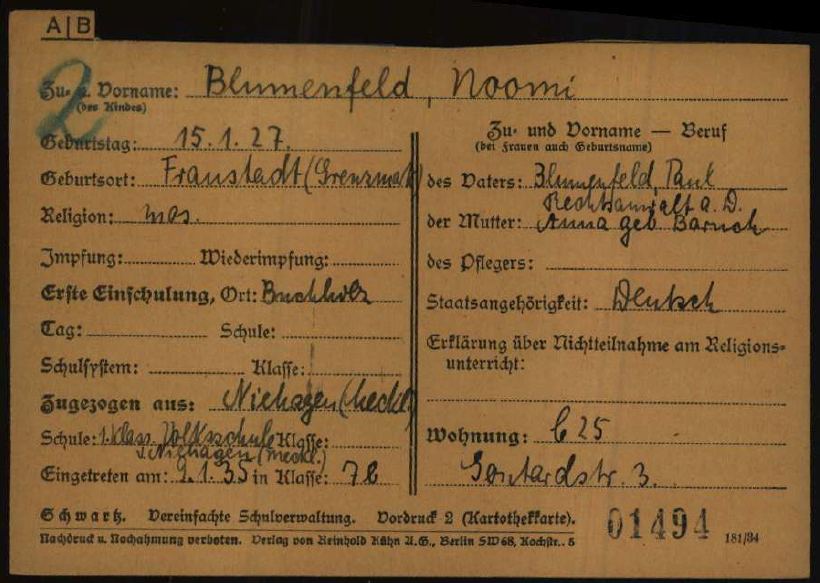 A|B
2
Zu- u. Vorname: Blumenfeld, Noomi
(des Kindes)
Geburtstag: 15.1.27.
Geburtsort: Fraustadt (Grenzmark)
Religion: mos.
Impfung: Wiederimpfung:
Erste Einschulung, Ort: Buchholz
Tag: Schule:
Schulsystem: Klasse:
Zugezogen aus: Niehagen (Meckl)
Schule: 1. klass. Volksschule Klasse:
i. Niehagen (Meckl.)
Eingetreten am: 9.1.35 in Klasse: 7B
Zu- und Vorname — Beruf
(bei Frauen auch Geburtsname)
des Vaters: Blumenfeld, Paul
Rechtsanwalt a. D.
der Mutter: Anna geb Baruch
des Pflegers:
Staatsangehörigkeit: Deutsch
Erklärung über Nichtteilnahme am Religions-
unterricht:
Wohnung: C 25
Gontardstr. 3.
Schwartz. Vereinfachte Schulverwaltung. Vordruck 2 (Karthotekkarte). 01494 181/34
Nachdruck u. Nachahmung verboten. Verlag von Reinhold Kühn A.G., Berlin SW 68, Kochstr. 5